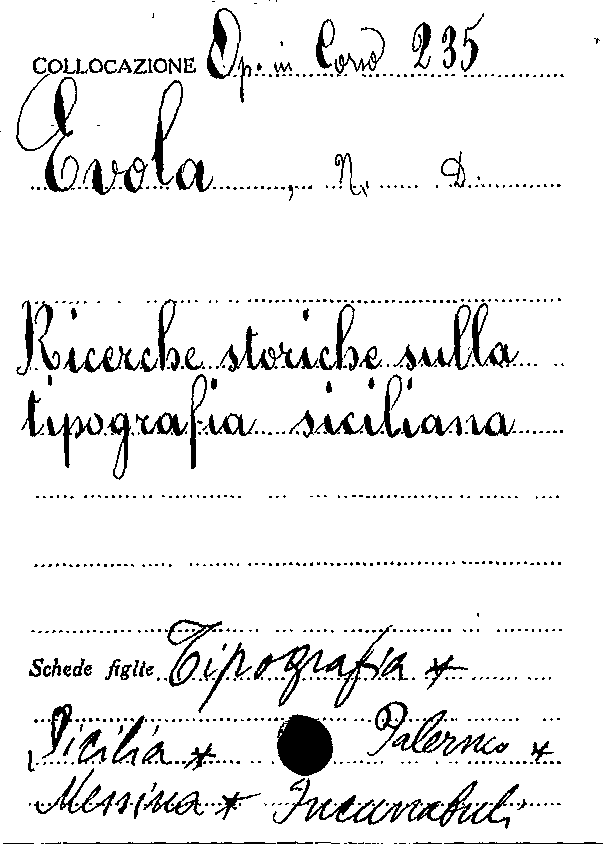 COLLOCAZIONE Op. in Corso 235
Evola, N. D.
Ricerche storiche sulla
tipografia siciliana
Schede figlie Tipografia *
Sicilia * Palermo *
Messina * Incunabuli